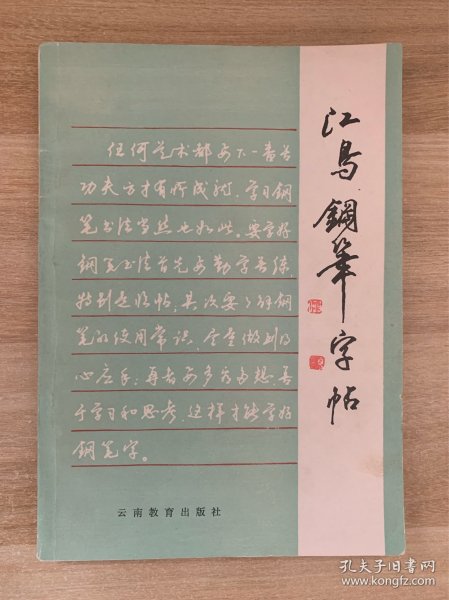 江鸟钢笔字帖
任何艺术都要下一番苦
功夫方才有所成就，学习钢
笔书法当然也如此。要学好
钢笔书法首先要勤学苦练，
特别是临帖，其次要了解钢
笔的使用常识，尽量做到得
心应手；再者要多看多想，善
于学习和思考，这样才能学好
钢笔字。
云南教育出版社
孔夫子旧书网
www.kongfz.com